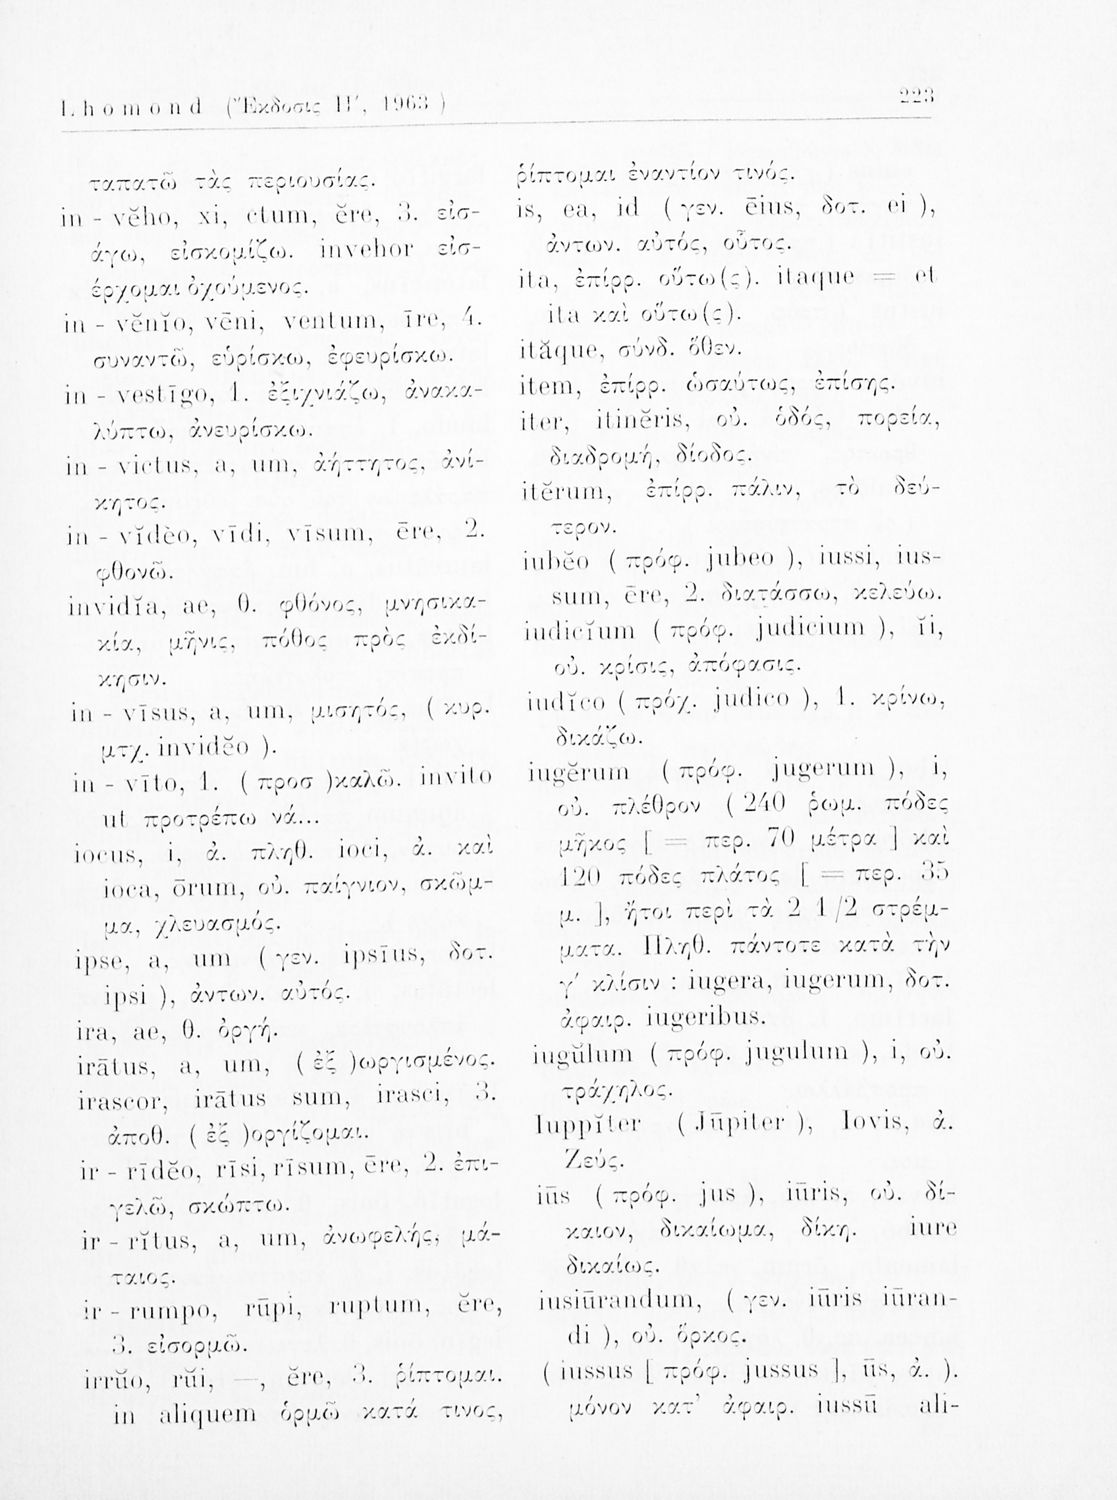 Lhomond (Ἔκδοσις Η΄, 1963)
223
ταπατῶ τὰς περιουσίας.
in - vĕho, xi, ctum, ĕre, 3. εἰσ-
άγω, εἰσκομίζω. invehor εἰσ-
έρχομαι ὀχούμενος.
in - vĕnĭo, vēni, ventum, īre, 4.
συναντῶ, εὑρίσκω, ἐφευρίσκω.
in - vestīgo, 1. ἐξιχνιάζω, ἀνακα-
λύπτω, ἀνευρίσκω.
in - victus, a, um, ἀήττητος, ἀνί-
κητος.
in - vĭdĕo, vīdi, vīsum, ēre, 2.
φθονῶ.
invidĭa, ae, θ. φθόνος, μνησικα-
κία, μῆνις, πόθος πρὸς ἐκδί-
κησιν.
in - vīsus, a, um, μισητός, ( κυρ.
μτχ. invidĕo ).
in - vīto, 1. ( προσ )καλῶ. invito
ut προτρέπω νά...
iocus, i, ἀ. πληθ. ioci, ἀ. καὶ
ioca, ōrum, οὐ. παίγνιον, σκῶμ-
μα, χλευασμός.
ipse, a, um ( γεν. ipsīus, δοτ.
ipsi ), ἀντων. αὐτός.
ira, ae, θ. ὀργή.
irātus, a, um, ( ἐξ )ωργισμένος.
irascor, irātus sum, irasci, 3.
ἀποθ. ( ἐξ )οργίζομαι.
ir - rīdĕo, rīsi, rīsum, ēre, 2. ἐπι-
γελῶ, σκώπτω.
ir - rĭtus, a, um, ἀνωφελής, μά-
ταιος.
ir - rumpo, rūpi, ruptum, ĕre,
3. εἰσορμῶ.
irrŭo, rŭi, —, ĕre, 3. ῥίπτομαι.
in aliquem ὁρμῶ κατά τινος,
ῥίπτομαι ἐναντίον τινός.
is, ea, id ( γεν. ēius, δοτ. ei ),
ἀντων. αὐτός, οὗτος.
ita, ἐπίρρ. οὕτω(ς). itaque = et
ita καὶ οὕτω(ς).
ităque, σύνδ. ὅθεν.
item, ἐπίρρ. ὡσαύτως, ἐπίσης.
iter, itinĕris, οὐ. ὁδός, πορεία,
διαδρομή, δίοδος.
itĕrum, ἐπίρρ. πάλιν, τὸ δεύ-
τερον.
iubĕo ( πρόφ. jubeo ), iussi, ius-
sum, ēre, 2. διατάσσω, κελεύω.
iudicĭum ( πρόφ. judicium ), ĭi,
οὐ. κρίσις, ἀπόφασις.
iudĭco ( πρόχ. judico ), 1. κρίνω,
δικάζω.
iugĕrum ( πρόφ. jugerum ), i,
οὐ. πλέθρον ( 240 ῥωμ. πόδες
μῆκος [ = περ. 70 μέτρα ] καὶ
120 πόδες πλάτος [ = περ. 35
μ. ], ἤτοι περὶ τὰ 2 1/2 στρέμ-
ματα. Πληθ. πάντοτε κατὰ τὴν
γ΄ κλίσιν : iugera, iugerum, δοτ.
ἀφαιρ. iugeribus.
iugŭlum ( πρόφ. jugulum ), i, οὐ.
τράχηλος.
Iuppĭter ( Jūpiter ), Iovis, ἀ.
Ζεύς.
iūs ( πρόφ. jus ), iūris, οὐ. δί-
καιον, δικαίωμα, δίκη. iure
δικαίως.
iusiūrandum, ( γεν. iūris iūran-
di ), οὐ. ὅρκος.
( iussus [ πρόφ. jussus ], ūs, ἀ. ).
μόνον κατ᾽ ἀφαιρ. iussū ali-